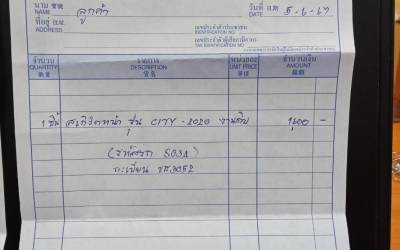 นาม 寶號 ลูกค้า วันที่ 日期
NAME DATE 5-6-67
ที่อยู่ 住址 เลขประจำตัวประชาชน
ADDRESS IDENTIFICATION NO.
เลขประจำตัวผู้เสียภาษีอากร
TAX IDENTIFICATION NO.
จำนวน รายการ หน่วยละ จำนวนเงิน
QUANTITY DESCRIPTION UNIT PRICE AMOUNT
數量 貨名 單位 銀額
1 ชิ้น สเกิร์ตหน้า รุ่น CITY - 2020 งานดิบ 1,600 -
(รหัสรถ SG3A)
ทะเบียน 3052